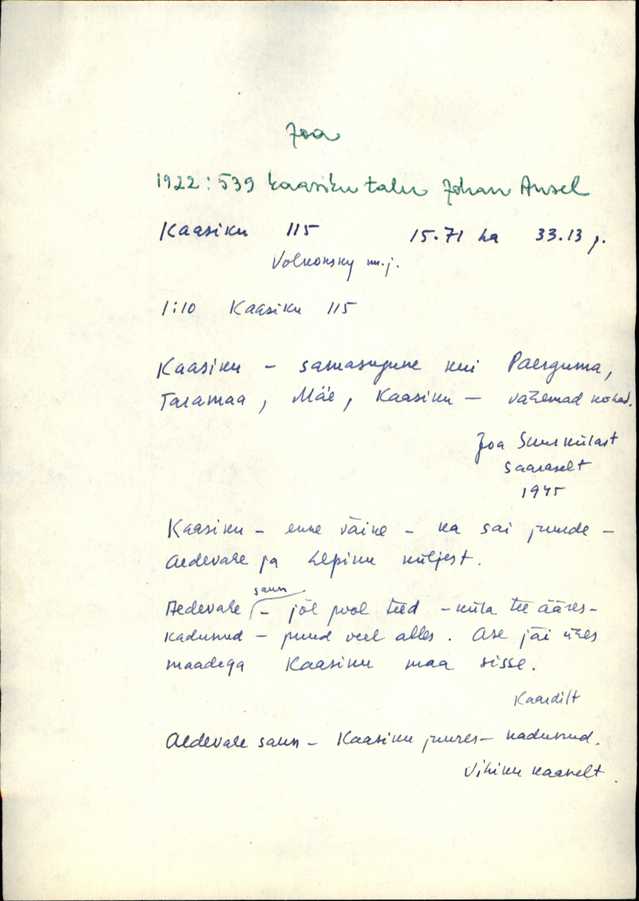 Joa
1922:539 Kaasiku talu Johan Ansel
Kaasiku 115 15.71 ha 33.13 r.
Volkonsky m.j.
1:10 Kaasiku 115
Kaasiku – samasugune kui Paerguma,
Taramaa, Mäe, Kaasiku – vähemad kohad.
Joa Suurkülast
Saaraselt
1945
Kaasiku – enne väike – ka sai juurde –
Aedevahe ja Lepiku küljest.
Aedevahe saun – jõe pool teed – küla tee ääres –
kadunud – puud veel alles. Ase jäi ühes
maadega Kaasiku maa sisse.
Kaardilt
Aedevahe saun – Kaasiku juures – kadunud.
Vihiku kaanelt